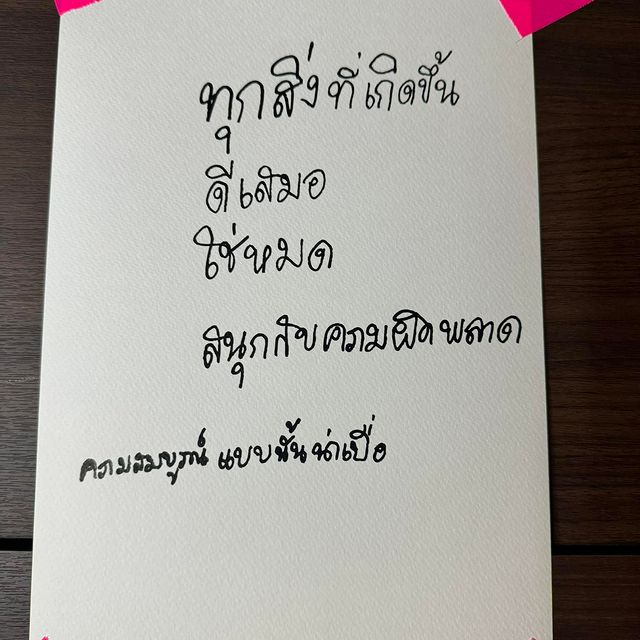 ทุกสิ่งที่เกิดขึ้น
ดีเสมอ
ใช่หมด
สนุกกับความผิดพลาด
ความสมบูรณ์ แบบนั้นน่าเบื่อ